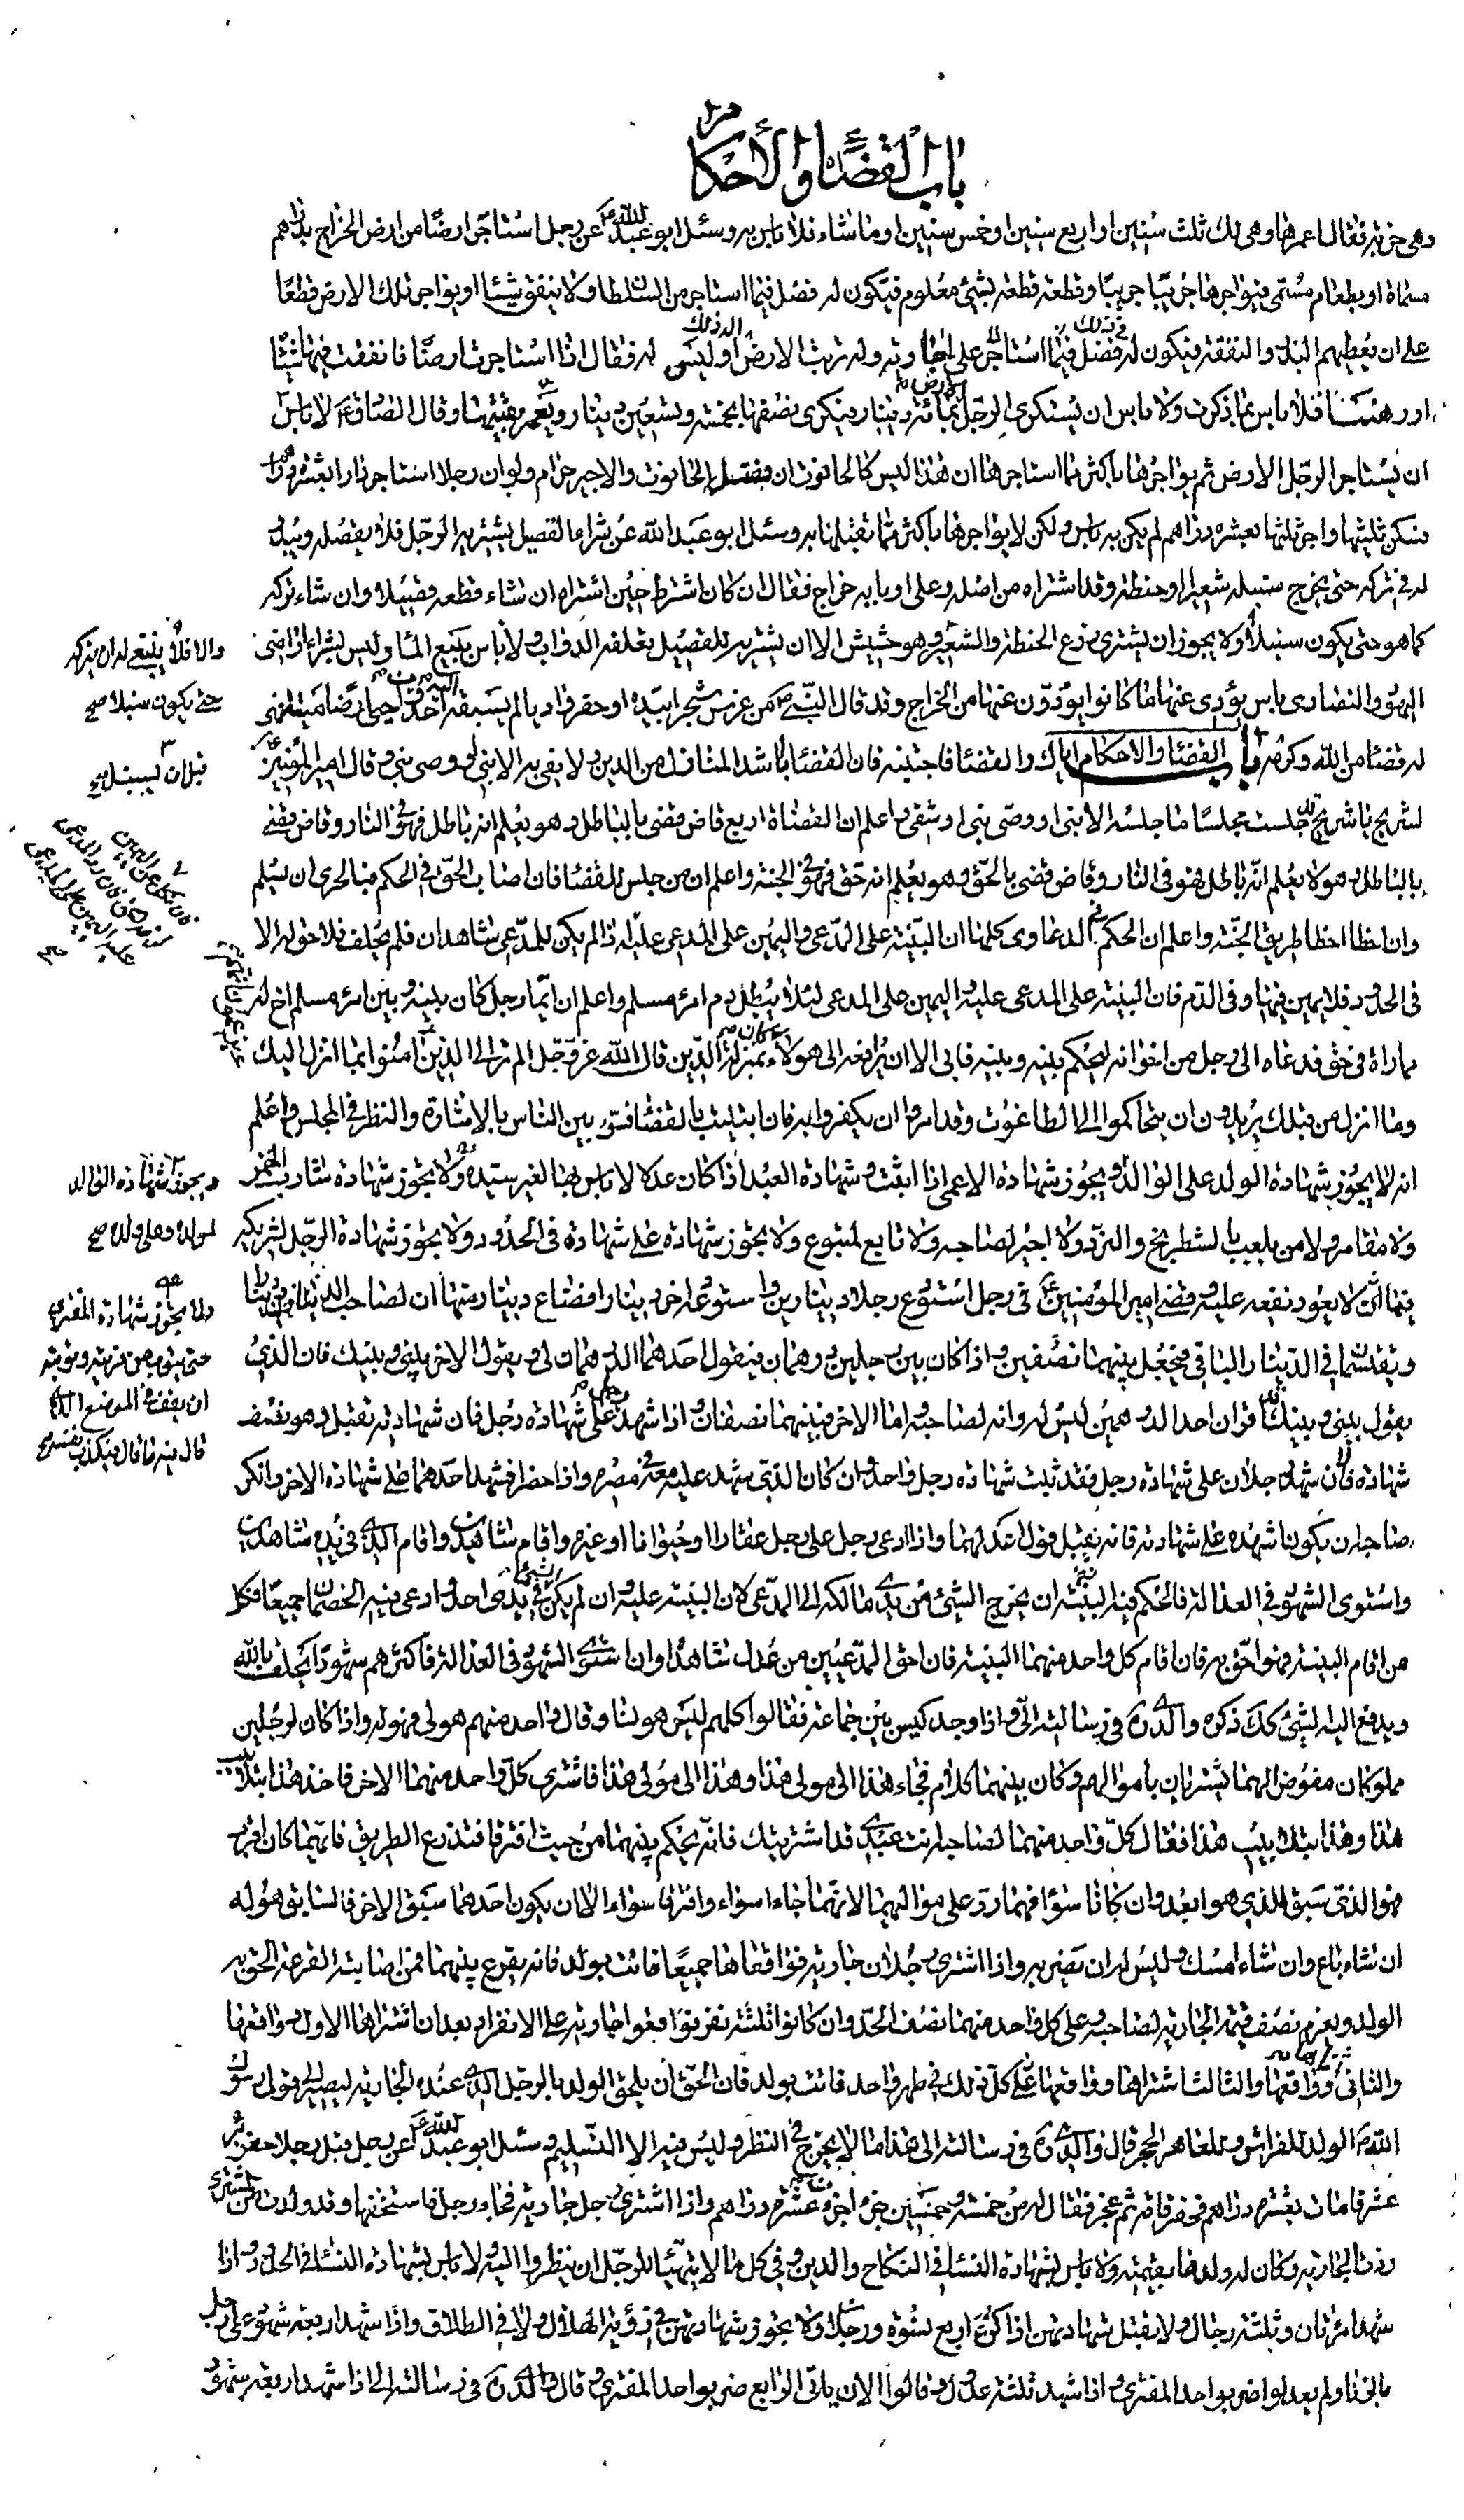 باب القضاء والأحكام
وهي خربة فقال اعمرها وهي لك ثلث سنين او اربع سنين او خمس سنين او ما شاء فلا باس به وسئل ابو عبد الله ع عن رجل استاجر ارضا من ارض الخراج بدراهم
مسماة او بطعام مسمى فيواجرها جريبا جريبا وقطعة قطعة بشيء معلوم فيكون له فضل فيما استاجر من السلطان ولا ينفق شيئا او يواجر تلك الارض قطعا
على ان يعطيهم البذر والنفقة فيكون له في ذلك فضل فيما استاجر على اجارته وله تربة الارض اله ذلك او ليس له فقال اذا استاجرت ارضا فانفقت فيها شيئا
او رممت فلا باس بما ذكرت ولا باس ان يستكري الرجل الارض بمائة دينار فيكري نصفها بخمسة وتسعين دينار ويعمر بقيتها وقال الصادق ع لا باس
ان يستاجر الرجل الارض ثم يواجرها باكثر مما استاجرها ان هذا ليس كالحانوت ان فضل الحانوت والاجير حرام ولو ان رجلا استاجر دارا بعشرة دراهم
فسكن ثلثيها واجر ثلثها بعشرة دراهم لم يكن به باس ولكن لا يواجرها باكثر مما تقبلها به وسئل ابو عبد الله عن شراء القصيل يشتريه الرجل فلا يقصله ويبدو
له في تركه حتى يخرج سنبله شعيرا او حنطة وقد اشتراه من اصله وعلى اربابه خراج فقال ان كان اشترط حين اشتراه ان شاء قطعه قصيلا وان شاء تركه
كما هو حتى يكون سنبلا ولا يجوز ان يشتري زرع الحنطة والشعير وهو حشيش الا ان يشتريه للقصيل يعلفه الدواب ولا باس ببيع الماء وليس بشراء اراضي
والا فلا ينبغي له ان يتركه
حتى يكون سنبلا صح
قبل ان يسنبل صح
اليهود والنصارى باس يؤدي عنها ما كانوا يؤدون عنها من الخراج وقد قال النبي ص من غرس شجرا بدءا او حفر واديا لم يسبقه اليه احد او احيى ارضا ميتة فهي
له قضاء من الله ورسوله باب القضاء والاحكام اياك والقضاء فاجتنبه فان القضاء اشد المنازل من الدين ولا يفي به الا نبي او وصي نبي وقال امير المؤمنين ع
لشريح يا شريح قد جلست مجلسا ما جلسه الا نبي او وصي نبي او شقي واعلم ان القضاة اربع قاض قضى بالباطل وهو يعلم انه باطل فهو في النار وقاض قضى
بالباطل وهو لا يعلم انه باطل فهو في النار وقاض قضى بالحق وهو يعلم انه حق فهو في الجنة واعلم ان من جلس للقضاء فان اصاب الحق في الحكم فبالحري ان يسلم
وان اخطا اخطا طريق الجنة واعلم ان الحكم في الدعاوى كلها ان البينة على المدعي واليمين على المدعى عليه اذا لم يكن للمدعي شاهدان فلم يحلف فلا حق له الا
في الحدود فلا يمين فيها وفي الدم فان البينة على المدعى عليه واليمين على المدعي لئلا يبطل دم امرء مسلم واعلم ان ايما رجل كان بينه وبين امرء مسلم اخ له
مماراة في حق فدعاه الى رجل من اخوانه ليحكم بينه وبينه فابى الا ان يرافعه الى هؤلاء كان بمنزلة الذين قال الله عز وجل الم تر الى الذين امنوا بما انزل اليك
وما انزل من قبلك يريدون ان يتحاكموا الى الطاغوت وقد امروا ان يكفروا به فان ابتليت بالقضاء فسو بين الناس بالاشارة والنظر في المجلس واعلم
انه لا يجوز شهادة الولد على الوالد ويجوز شهادة الاعمى اذا اثبت وشهادة العبد اذا كان عدلا لا باس بها لغير سيده ولا يجوز شهادة شارب الخمر
ويجوز شهادة الوالد
لولده وعلى ولده صح
ولا مقامر ولا من يلعب بالشطرنج والنرد ولا اجير لصاحبه ولا تابع لمتبوع ولا يجوز شهادة على شهادة في الحدود ولا يجوز شهادة الرجل لشريكه
ولا يجوز شهادة المفتري
حتى يتوب من فريته وتوبته
ان يقف في الموضع الذي
قال فيه ما قال فيكذب نفسه صح
فيما لا يعود نفعه عليه وقضى امير المؤمنين ع في رجل استودع رجلا دينارين واستودعه اخر دينارا فضاع دينار منها ان لصاحب الدينارين دينارا
ويقتسما في الدينار الباقي فيجعل بينهما نصفين واذا كان بين رجلين درهمان فيقول احدهما الدرهمان لي ويقول الاخر بيني وبينك فان الذي
يقول بيني وبينك قد اقر ان احد الدرهمين ليس له وانه لصاحبه واما الاخر فبينهما نصفان واذا شهد رجل على شهادة رجل فان شهادته تقبل وهو نصف
شهادة فان شهد رجلان على شهادة رجل فقد ثبت شهادة رجل واحد وان كان الذي شهد عليه معه في مصره واذا حضرا فشهد احدهما على شهادة الاخر وانكر
صاحبه ان يكون اشهده على شهادته فانه يقبل قول اعدلهما واذا ادعى رجل على رجل عقارا او حيوانا او غيره واقام شاهدين واقام الذي في يده شاهدين
واستوى الشهود في العدالة فالحكم فيه البينة ان يخرج الشيء من يدي مالكه الى المدعي لان البينة عليه وان لم يكن الشيء في يدي احد وادعى فيه الخصمان جميعا فكل
من اقام البينة فهو احق به فان اقام كل واحد منهما البينة فان احق المدعيين من عدل شاهداه وان استوى الشهود في العدالة فاكثرهم شهودا يحلف بالله
ويدفع اليه الشيء كك ذكره والدي ره في رسالته الي واذا وجد كيس بين جماعة فقالوا كلهم ليس هو لنا وقال واحد منهم هو لي فهو له واذا كان لرجلين
مملوكان مفوض اليهما يشتريان باموالهم وكان بينهما كلام فجاء هذا الى مولى هذا وهذا الى مولى هذا فاشترى كل واحد منهما الاخر فاخذ هذا بتلابيب
هذا وهذا بتلابيب هذا فقال كل واحد منهما لصاحبه انت عبدي قد اشتريتك فانه يحكم بينهما من حيث افترقا فتذرع الطريق فايهما كان اقرب
فهو الذي سبق الذي هو ابعد وان كانا سواء فهما رد على مواليهما لانهما جاءا سواء وافترقا سواء الا ان يكون احدهما سبق الاخر فالسابق هو له
ان شاء باع وان شاء امسك وليس له ان يضر به واذا اشترى رجلان جارية فواقعاها جميعا فاتت بولد فانه يقرع بينهما فمن اصابته القرعة الحق به
الولد ويغرم نصف قيمة الجارية لصاحبه وعلى كل واحد منهما نصف الحد وان كانوا ثلثة نفر فواقعوا جارية على الانفراد بعد ان اشتراها الاول وواقعها
والثاني اشتراها وواقعها والثالث اشتراها وواقعها كل ذلك في طهر واحد فاتت بولد فان الحق ان يلحق الولد بالرجل الذي عنده الجارية ليصير الى قول رسول
الله ص الولد للفراش وللعاهر الحجر قال والدي ره في رسالته الى هذا ما لا يخرج في النظر وليس فيه الا التسليم وسئل ابو عبد الله ع عن رجل قبل رجلا حفر بئر
عشر قامات بعشرة دراهم فحفر قامة ثم عجز فقال له من خمسة وخمسين جزء اجزء عشرة دراهم واذا اشترى رجل جارية فجاء رجل فاستحقها وقد ولدت من المشتري
ردت الجارية وكان له ولدها بقيمته ولا باس بشهادة النساء في النكاح والدين وفي كل ما لا يتهيا للرجل ان ينظروا اليه ولا باس بشهادة النساء في الحدود اذا
شهد امراتان وثلثة رجال ولا يقبل شهادتهن اذا كن اربع نسوة ورجلان ولا يجوز شهادتهن في رؤية الهلال ولا في الطلاق واذا شهد اربعة شهود على رجل
بالزنا ولم يعدلوا ضربوا حد المفتري واذا شهد ثلثة عدول وقالوا الان ياتي الرابع ضربوا حد المفتري وقال والدي ره في رسالته الي اذا شهد اربعة شهود